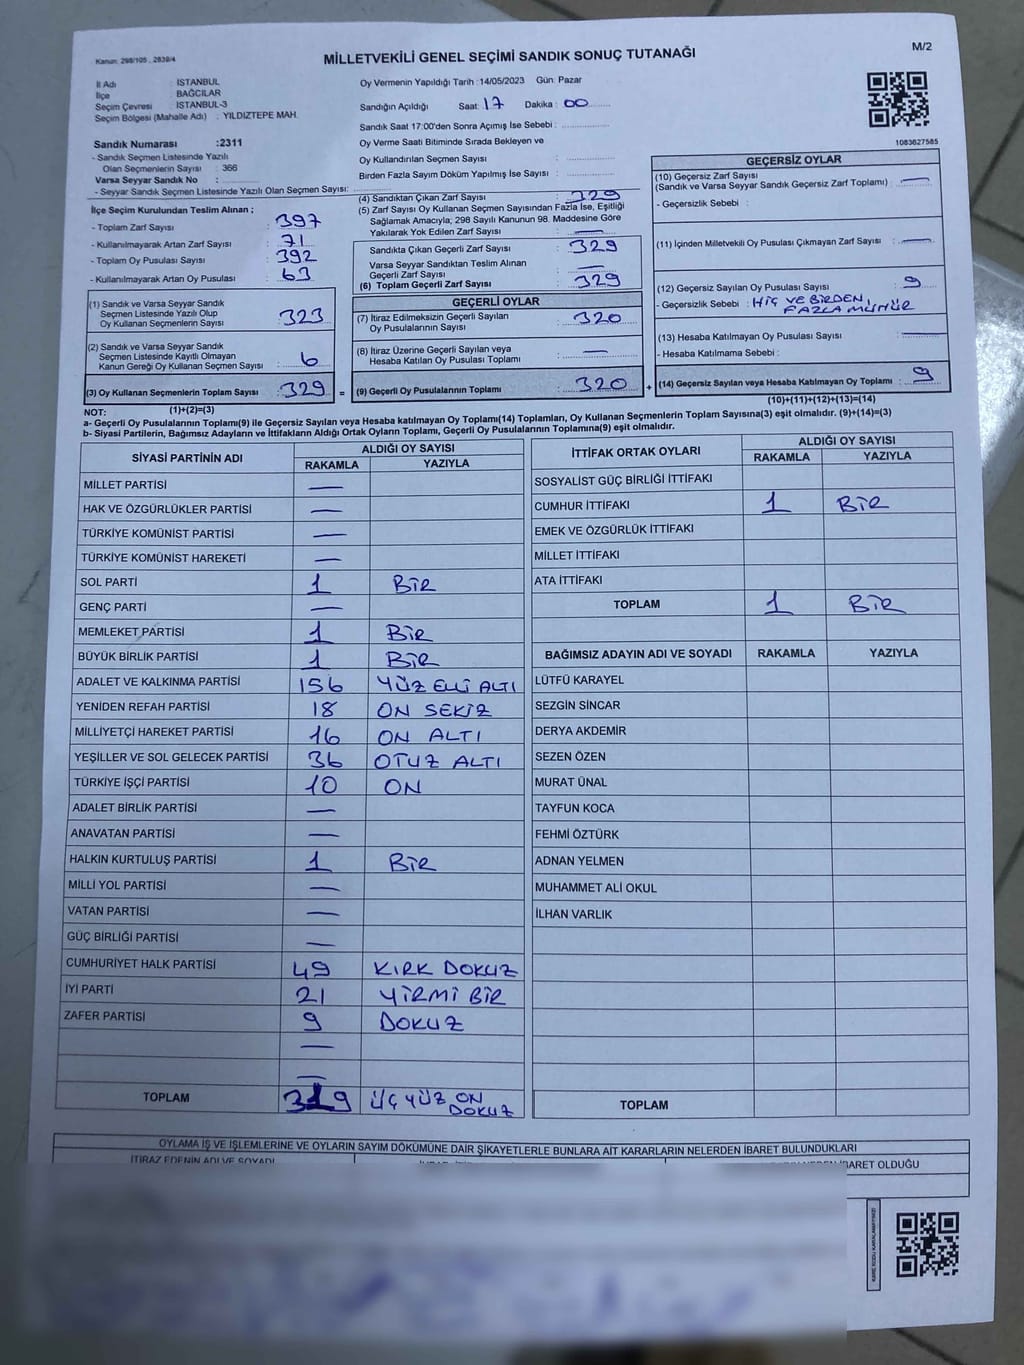 Kanun: 298/105 , 2839/4
MİLLETVEKİLİ GENEL SEÇİMİ SANDIK SONUÇ TUTANAĞI
M/2
İl Adı : İSTANBUL
İlçe : BAĞCILAR
Seçim Çevresi : İSTANBUL-3
Seçim Bölgesi (Mahalle Adı) : YILDIZTEPE MAH.
Sandık Numarası :2311
- Sandık Seçmen Listesinde Yazılı
Olan Seçmenlerin Sayısı : 366
Varsa Seyyar Sandık No :
- Seyyar Sandık Seçmen Listesinde Yazılı Olan Seçmen Sayısı:
Oy Vermenin Yapıldığı Tarih :14/05/2023 Gün: Pazar
Sandığın Açıldığı Saat: 17 Dakika : 00
Sandık Saat 17:00'den Sonra Açımış İse Sebebi :
Oy Verme Saati Bitiminde Sırada Bekleyen ve
Oy Kullandırılan Seçmen Sayısı :
Birden Fazla Sayım Döküm Yapılmış İse Sayısı :
1083627585
İlçe Seçim Kurulundan Teslim Alınan ;
- Toplam Zarf Sayısı : 397
- Kullanılmayarak Artan Zarf Sayısı : 71
- Toplam Oy Pusulası Sayısı : 392
- Kullanılmayarak Artan Oy Pusulası : 63
(1) Sandık ve Varsa Seyyar Sandık
Seçmen Listesinde Yazılı Olup
Oy Kullanan Seçmenlerin Sayısı : 323
(2) Sandık ve Varsa Seyyar Sandık
Seçmen Listesinde Kayıtlı Olmayan
Kanun Gereği Oy Kullanan Seçmen Sayısı : 6
(3) Oy Kullanan Seçmenlerin Toplam Sayısı : 329 =
(1)+(2)=(3)
(4) Sandıktan Çıkan Zarf Sayısı : 329
(5) Zarf Sayısı Oy Kullanan Seçmen Sayısından Fazla İse, Eşitliği
Sağlamak Amacıyla; 298 Sayılı Kanunun 98. Maddesine Göre
Yakılarak Yok Edilen Zarf Sayısı : —
Sandıkta Çıkan Geçerli Zarf Sayısı : 329
Varsa Seyyar Sandıktan Teslim Alınan
Geçerli Zarf Sayısı : —
(6) Toplam Geçerli Zarf Sayısı : 329
GEÇERLİ OYLAR
(7) İtiraz Edilmeksizin Geçerli Sayılan
Oy Pusulalarının Sayısı : 320
(8) İtiraz Üzerine Geçerli Sayılan veya
Hesaba Katılan Oy Pusulası Toplamı : —
(9) Geçerli Oy Pusulalarının Toplamı : 320 +
GEÇERSİZ OYLAR
(10) Geçersiz Zarf Sayısı
(Sandık ve Varsa Seyyar Sandık Geçersiz Zarf Toplamı) : —
- Geçersizlik Sebebi :
(11) İçinden Milletvekili Oy Pusulası Çıkmayan Zarf Sayısı : —
(12) Geçersiz Sayılan Oy Pusulası Sayısı : 9
- Geçersizlik Sebebi : HİÇ VE BİRDEN,
FAZLA MÜHÜR
(13) Hesaba Katılmayan Oy Pusulası Sayısı : —
- Hesaba Katılmama Sebebi :
(14) Geçersiz Sayılan veya Hesaba Katılmayan Oy Toplamı : 9
(10)+(11)+(12)+(13)=(14)
NOT:
a- Geçerli Oy Pusulalarının Toplamı(9) ile Geçersiz Sayılan veya Hesaba katılmayan Oy Toplamı(14) Toplamları, Oy Kullanan Seçmenlerin Toplam Sayısına(3) eşit olmalıdır. (9)+(14)=(3)
b- Siyasi Partilerin, Bağımsız Adayların ve İttifakların Aldığı Ortak Oyların Toplamı, Geçerli Oy Pusulalarının Toplamına(9) eşit olmalıdır.
SİYASİ PARTİNİN ADI
ALDIĞI OY SAYISI
RAKAMLA YAZIYLA
MİLLET PARTİSİ —
HAK VE ÖZGÜRLÜKLER PARTİSİ —
TÜRKİYE KOMÜNİST PARTİSİ —
TÜRKİYE KOMÜNİST HAREKETİ —
SOL PARTİ 1 BİR
GENÇ PARTİ —
MEMLEKET PARTİSİ 1 BİR
BÜYÜK BİRLİK PARTİSİ 1 BİR
ADALET VE KALKINMA PARTİSİ 156 YÜZ ELLİ ALTI
YENİDEN REFAH PARTİSİ 18 ON SEKİZ
MİLLİYETÇİ HAREKET PARTİSİ 16 ON ALTI
YEŞİLLER VE SOL GELECEK PARTİSİ 36 OTUZ ALTI
TÜRKİYE İŞÇİ PARTİSİ 10 ON
ADALET BİRLİK PARTİSİ —
ANAVATAN PARTİSİ —
HALKIN KURTULUŞ PARTİSİ 1 BİR
MİLLİ YOL PARTİSİ —
VATAN PARTİSİ —
GÜÇ BİRLİĞİ PARTİSİ —
CUMHURİYET HALK PARTİSİ 49 KIRK DOKUZ
İYİ PARTİ 21 YİRMİ BİR
ZAFER PARTİSİ 9 DOKUZ
—
—
TOPLAM 319 ÜÇ YÜZ ON
DOKUZ
İTTİFAK ORTAK OYLARI
ALDIĞI OY SAYISI
RAKAMLA YAZIYLA
SOSYALİST GÜÇ BİRLİĞİ İTTİFAKI
CUMHUR İTTİFAKI 1 BİR
EMEK VE ÖZGÜRLÜK İTTİFAKI
MİLLET İTTİFAKI
ATA İTTİFAKI
TOPLAM 1 BİR
BAĞIMSIZ ADAYIN ADI VE SOYADI RAKAMLA YAZIYLA
LÜTFÜ KARAYEL
SEZGİN SİNCAR
DERYA AKDEMİR
SEZEN ÖZEN
MURAT ÜNAL
TAYFUN KOCA
FEHMİ ÖZTÜRK
ADNAN YELMEN
MUHAMMET ALİ OKUL
İLHAN VARLIK
TOPLAM
OYLAMA İŞ VE İŞLEMLERİNE VE OYLARIN SAYIM DÖKÜMÜNE DAİR ŞİKAYETLERLE BUNLARA AİT KARARLARIN NELERDEN İBARET BULUNDUKLARI
İTİRAZ EDENİN ADI VE SOYADI
İBARET OLDUĞU